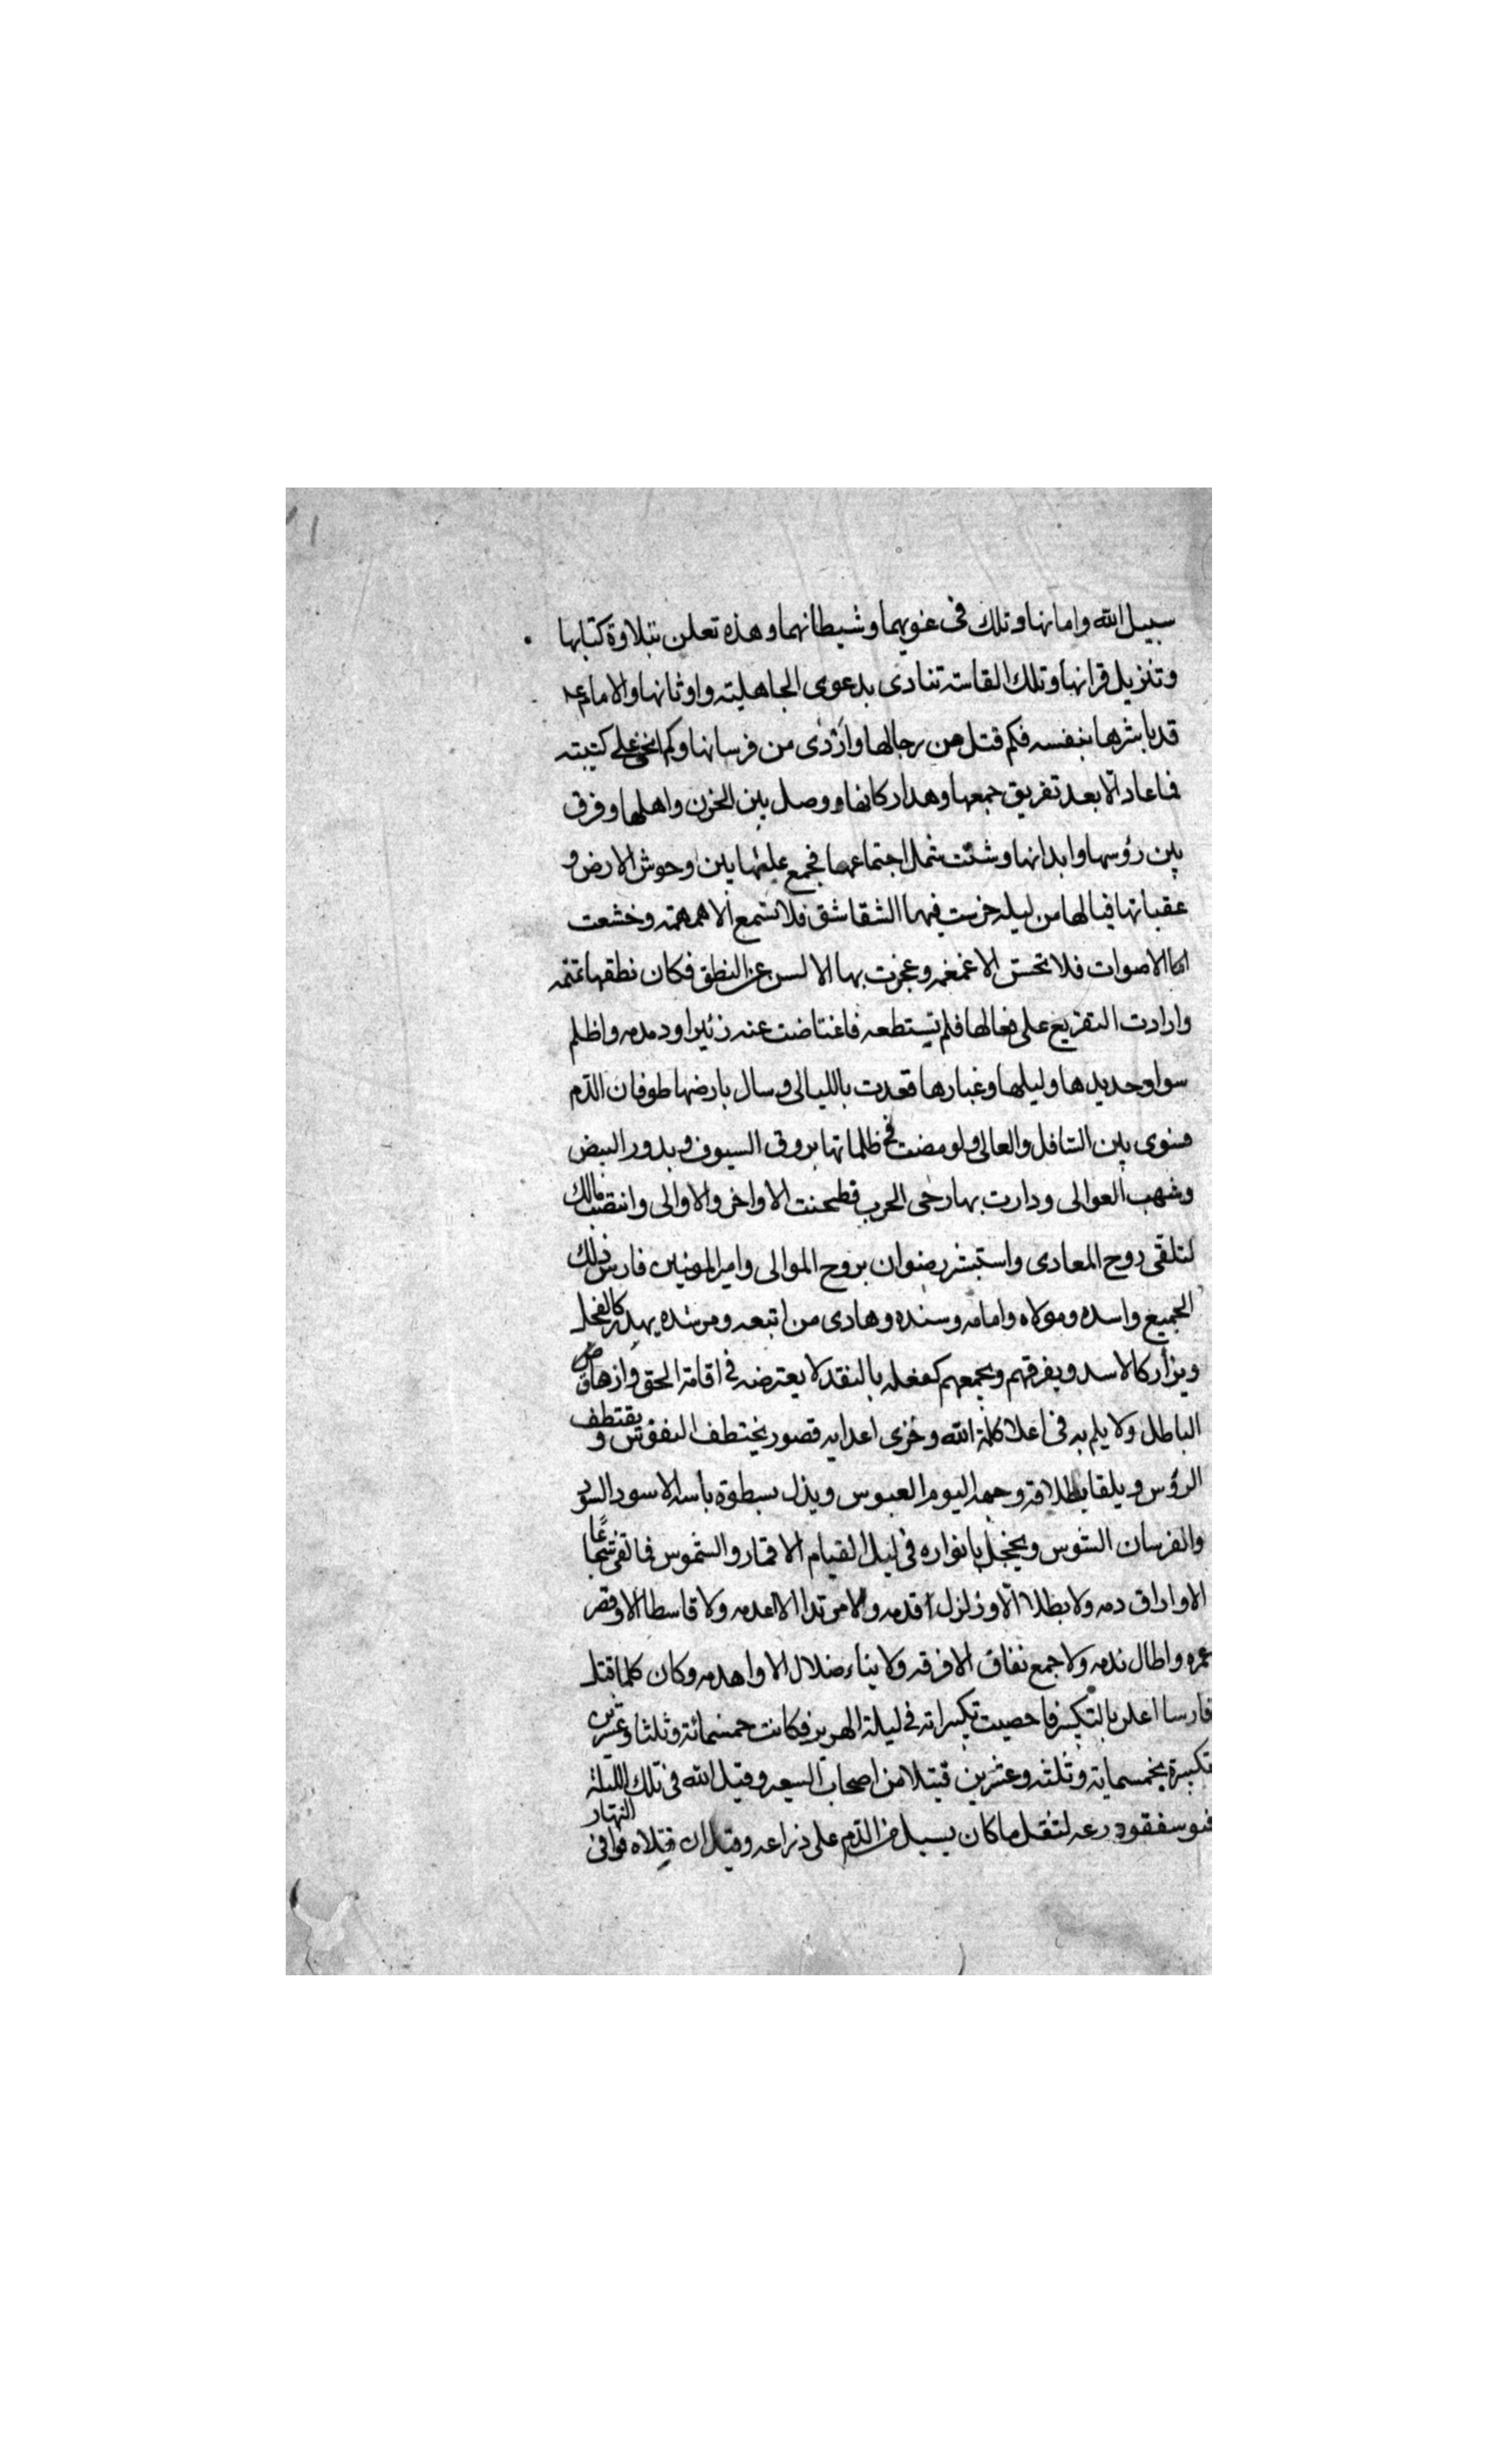 سبيل الله وامانها وتلك فى غويهما وشيطانهما وهذه تعلن بتلاوة كتابها
وتنزيل قرانها وتلك القاسته تنادى بدعوى الجاهلية واوثانها والامام عم
قد باشرها بنفسه فكم قتل من رجالها واردى من فرسانها وكم انحى على كتيبته
فاعاد الا بعد تفريق جمعها وهدار كانها ووصل بين الحزن واهلها وفرق
بين رؤسها وابدانها وشتت شمل اجتماعها فجمع عليها بين وحوش الارض و
عقبانها فيالها من ليلة خرست فيها الشقاشق فلا تسمع الا همهمة وخشعت
لها الاصوات فلا تحس الا غمغمه وعجزت بها الالسن عن النطق فكان نطقها تمتمه
وارادت التقريع على فعالها فلم تستطعه فاعتاضت عنه زئيرا ودمدمه واظلم
سواد حديدها وليلها وغبارها فعدت بالليالى وسال بارضها طوفان الدم
فسوى بين السافل والعالى واومضت فى ظلماتها بروق السيوف وبدور البيض
وشهب العوالى ودارت بها رحى الحرب فطحنت الاواخر والاوالى وانتصب مالك
لتلقى روح المعادى واستبشر رضوان بروح الموالى وامير المومنين فارس ذلك
الجميع واسده ومولاه وامامه وسنده وهادى من اتبعه ومرشده يهدر كالفحل
ويزأر كالاسد ويفرقهم ويجمعهم كفعله بالنقد لا يعترضه فى اقامة الحق وازهاق
الباطل ولا يلم به فى اعلا كلمة الله وخزى اعدايه قصور يختطف النفوس و يقتطف
الرؤس ويلقا بطلاقة وجهه اليوم العبوس ويذل بسطوة باسه الاسود السود
والفرسان الشوس ويخجل بانواره فى ليل القيام الاقمار والشموس فما لقى شجاعًا
الا واراق دمه ولا بطلا الا وزلزل قدمه ولا مرتدا الا اعدمه ولا قاسطا الا وقصر
عمره واطال ندمه ولا جمع نفاق الا فرقه ولا بناء ضلال الا وا هدمه وكان كلما قتل
فارسا اعلن بالتكبير فاحصيت تكبيراته فى ليلة الهرير فكانت خمسمائة وثلثا وعشرين
تكبيرة بخمسماية وثلثه وعشرين قتيلا من اصحاب السعير وقيل انه فى تلك الليلة
فتوسفقود رعه لثقل ما كان يسيل من الدم على ذراعه وقيل ان قتلاه فوا فى النهار